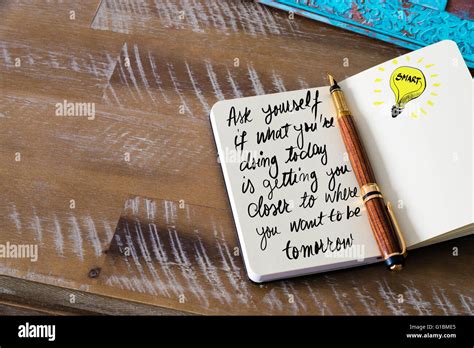 Ask yourself
if what you're
doing today
is getting you
closer to where
you want to be
tomorrow
SMART
alamy
alamy
Image ID: G1BME5
www.alamy.com